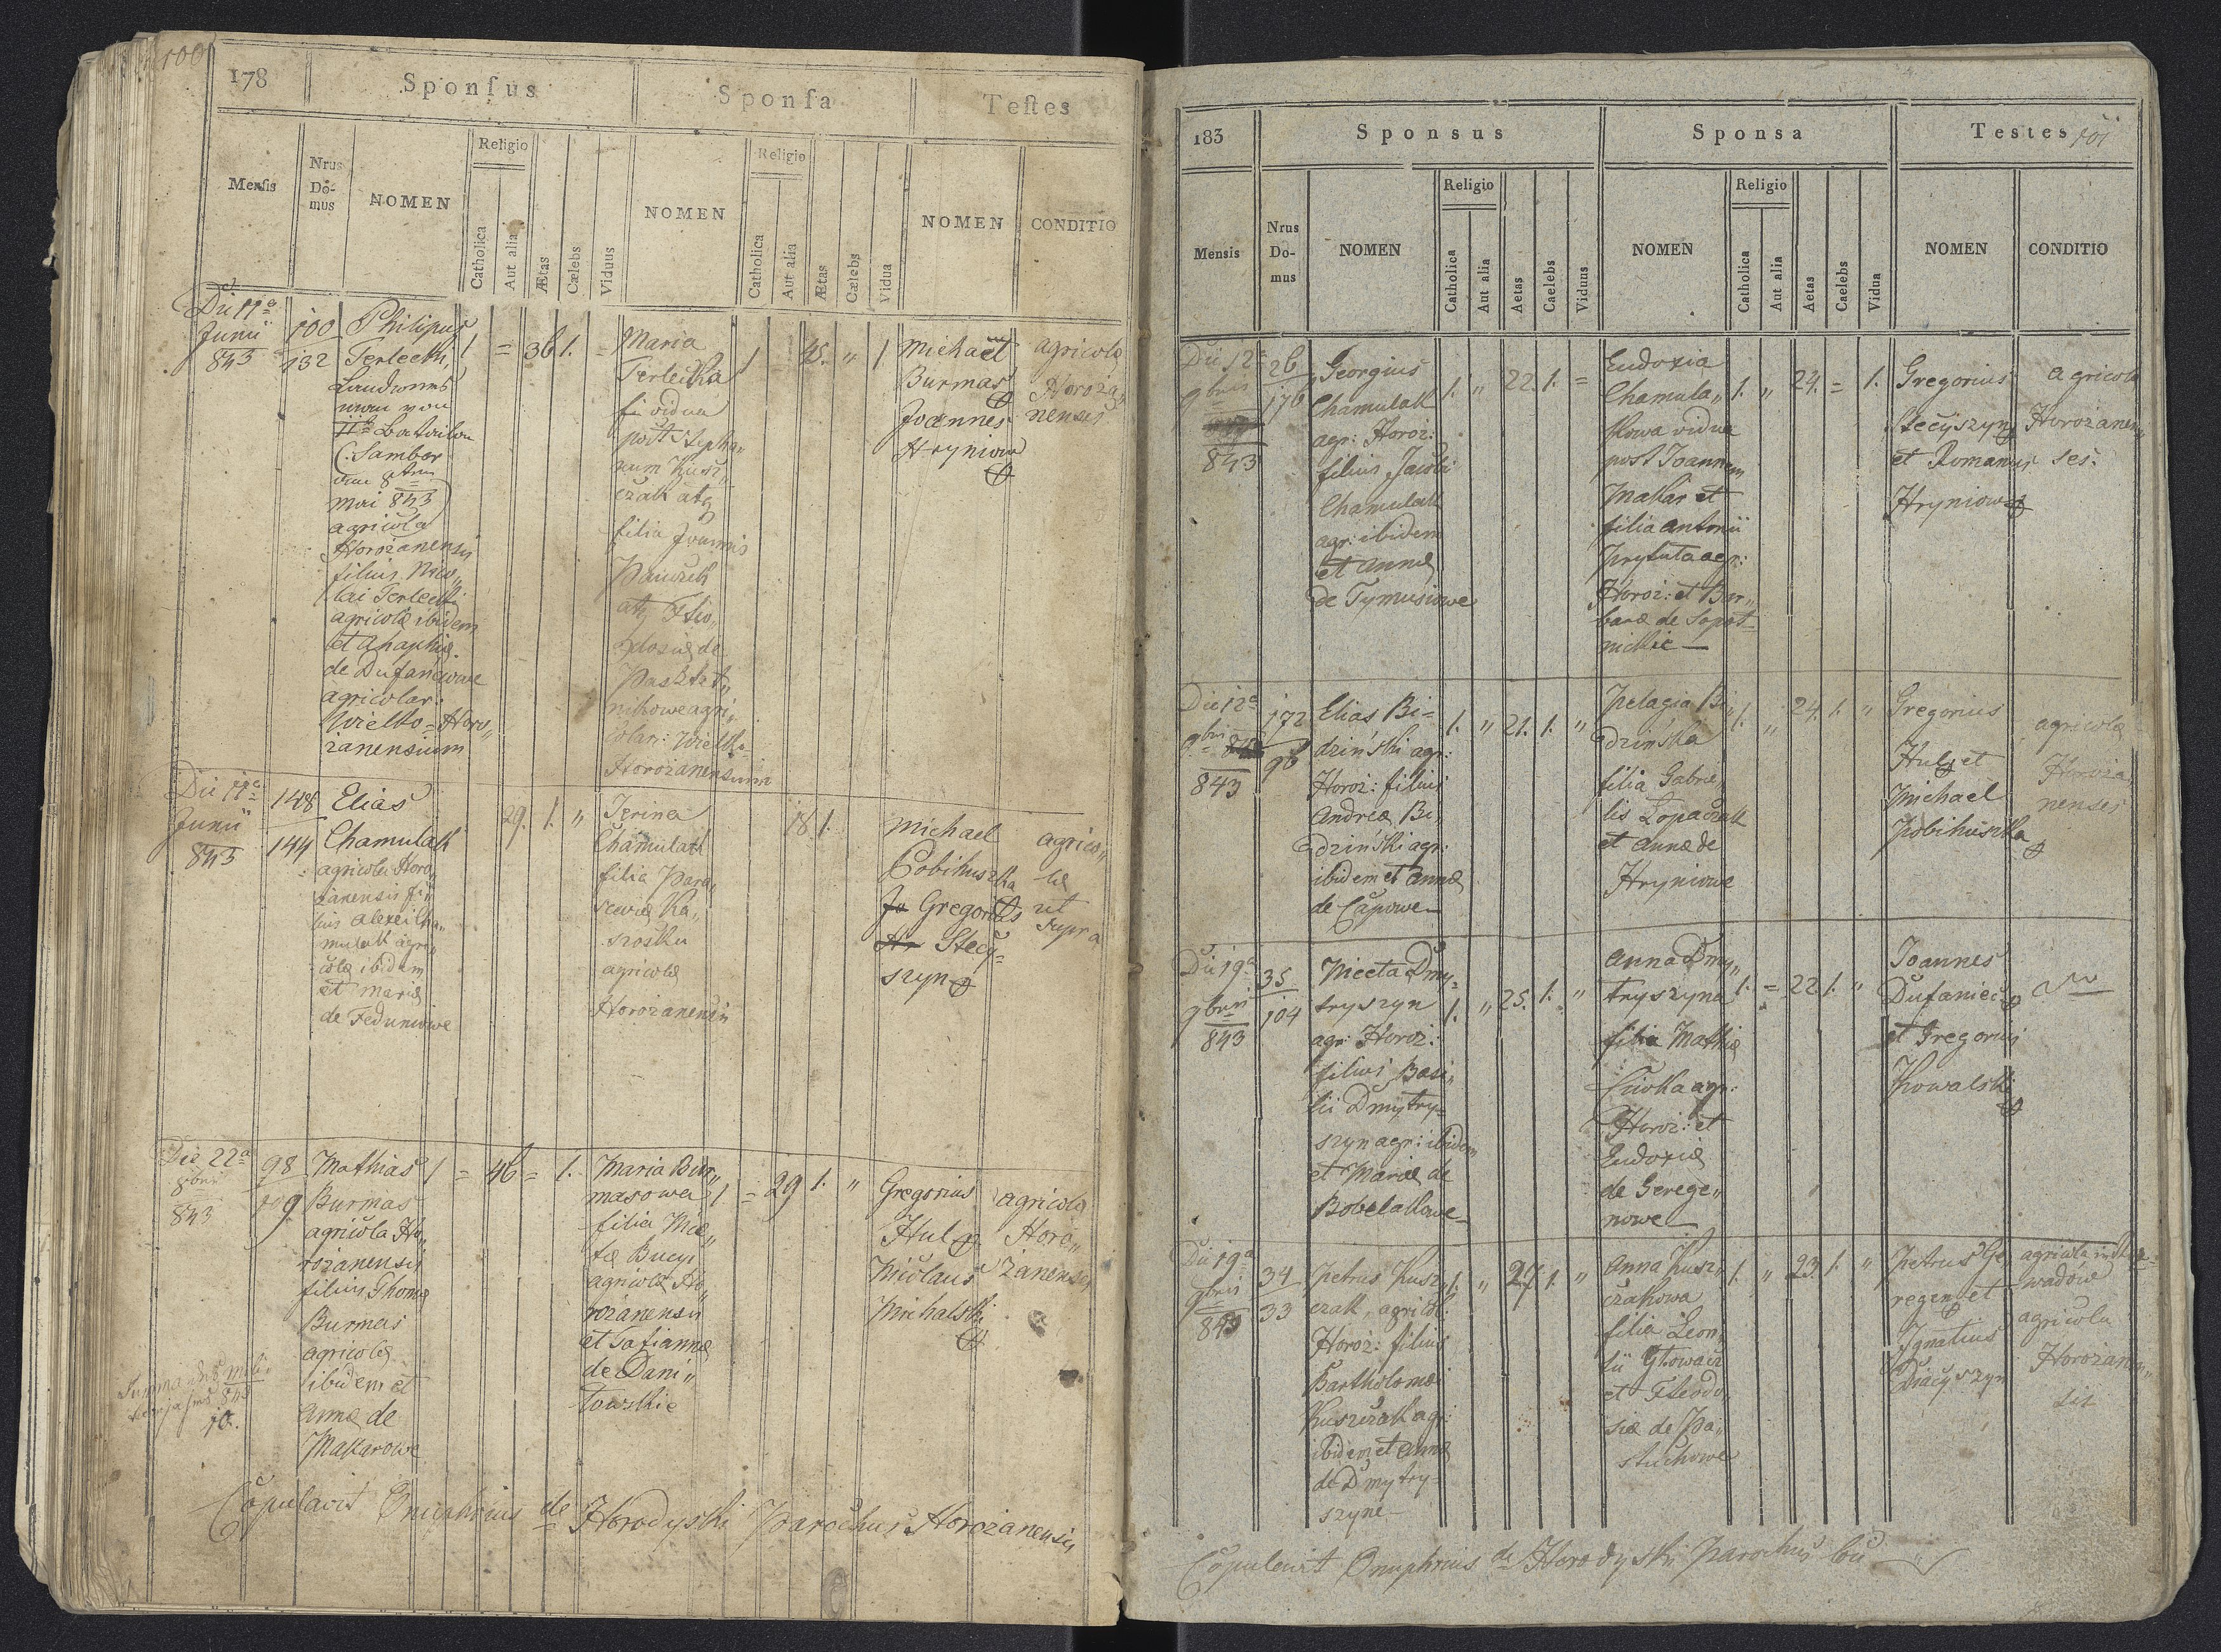 100
178
Sponsus
Sponsa
Testes
Mensis
Nrus Do-mus
NOMEN
Religio
Catholica
Aut alia
Ætas
Cælebs
Viduus
NOMEN
Religio
Catholica
Aut alia
Ætas
Cælebs
Vidua
NOMEN
CONDITIO
Die 11a
Junii
843
100
132
Philipus
Terlecki,
Landwehrs
mann von
Bataillon
(Sambor
mai 843)
agricola
Horożanensis
filius Nico„
lai Terlecki
agricolæ ibidem
et Ahaphiæ
de Dufanciowe
agricolar:
Wielko=Horo„
żanensium
1 = 36 1. =
Maria
Terlecka
vidua
post Stepha„
num Kusz„
czak atq
filia Joannis
Pańczuk
atq Theo„
dosiæ de
agri„
colar: Wielko
Horożanensium
1 45. „ 1
Michael
Burmas
Joannes
Hryniow
agricolæ
Horoża„
nenses
Die 11a
Junii
843
148
144
Elias
Chamulak
agricola Horo„
żanensis fi„
lius Alexii Cha„
mulak agri„
colæ ibidem
et Mariæ
de Feduniowe
29. 1. „
Irina
Chamulak
filia Para„
sceviæ Ka„
szośka
agricolæ
Horożanensis
18 1.
Michael
Pobihuszka
Gregorius
Stecy=
szyn
agrico„
læ
ut
supra
Die 22a
8bris
843
98
109
Mathias
Burmas
agricola Ho„
rożanensis
filius Thomæ
Burmas
agricolæ
ibidem et
Annæ de
Makarowe
1 = 46 = 1.
Maria Bur„
masowa
filia Nice„
tæ Bucyi
agricolæ Ho„
rożanensis
et Tatiannæ
de Dani„
lowskie
1 = 29 1. „
Gregorius
Hul
Nicolaus
Michalski
agricolæ
Horo„
żanenses
10.
Copulavit Onuphrius de Horodyski Parochus Horożanensis
183
Sponsus
Sponsa
Testes
101
Mensis
Nrus Do-mus
NOMEN
Religio
Catholica
Aut alia
Aetas
Caelebs
Viduus
NOMEN
Religio
Catholica
Aut alia
Aetas
Caelebs
Vidua
NOMEN
CONDITIO
Die 12a
9bris
843
26
176
Georgius
Chamulak
agr: Horoż:
filius Jacobi
Chamulak
agr: ibidem
et Annæ
de Tymusiowe
1. „ 22. 1. =
Eudoxia
Chamula„
kowa vidua
post Joannem
Makar et
filia Antonii
Prytuta agr:
Horoż: et Bar„
baræ de Sopot=
nickie —
1. „ 24. = 1.
Gregorius
Stecyszyn
et Romanus
Hryniow
agricolæ
Horożanen„
ses.
Die 12a
9bris
843
172
96
Elias Bi=
dziński agr:
Horoż: filius
Andreæ Bi„
dziński agr:
ibidem et Annæ
de Capowe —
1. „ 21. 1. „
Pelagia Bi„
dzińska
filia Gabrie„
lis Łopaczak
et Annæ de
Hryniowe
1. „ 24. 1. „
Gregorius
Hul et
Michael
Pobihuszka
agricolæ
Horoża„
nenses
Die 19a
9bris
843
35
104
Niceta Dmy„
tryszyn
agr: Horoż:
filius Basi„
lii Dmytry=
szyn agr: ibidem
et Mariæ de
Bobelakowe —
1. „ 25. 1. „
Anna Dmy„
tryszyna
filia Mathiæ
agr:
Horoż: et
Eudoxiæ
de Gerege„
nowe —
1. = 22 1. „
Joannes
Dufaniec
et Gregorius
Kowalski
Die 19a
9bris
843
34
33
Petrus Kusz„
czak agricol:
Horoż: filius
Bartholomæi
Kuszczak agr:
ibidem et Annæ
de Dmytry=
szyne —
1. „ 27. 1. „
Anna Kusz„
czakowa
filia Leon„
tii Głowacz
et Theodo„
siæ de Pa„
stuchowe
1. „ 23. 1. „
Petrus Ge„
regen et
Ignatius
Diaczyszyn
agricola
agricola
Horożanen„
sis
Copulavit Onuphrius de Horodyski Parochus loci